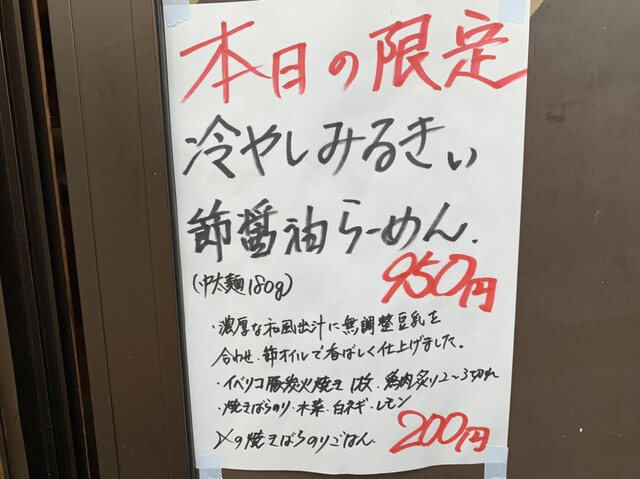 本日の限定
冷やしみるきぃ
節醤油らーめん.
(中太麺180g) 950円
・濃厚な和風出汁に無調整豆乳を
合わせ、節オイルで香ばしく仕上げました。
・イベリコ豚炭火焼き1枚、鶏肉炙り2〜3切れ
・焼きばらのり・水菜・白ネギ・レモン
〆の焼きばらのりごはん. 200円